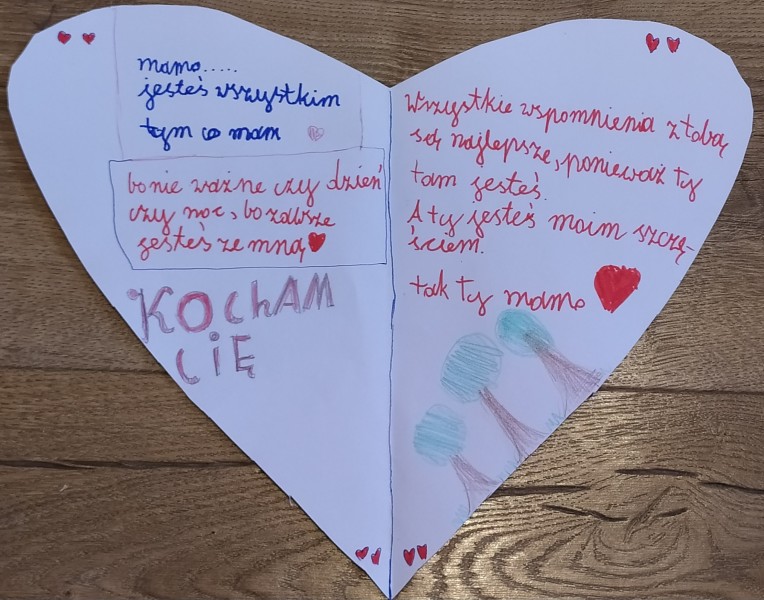 mamo.....
jesteś wszystkim
tym co mam
bo nie ważne czy dzień
czy noc, bo zawsze
jesteś ze mną
KOChAM
CiĘ
Wszystkie wspomnienia z tobą
są najlepsze, ponieważ ty
tam jesteś.
A ty jesteś moim szczę-
ściem.
tak ty mamo